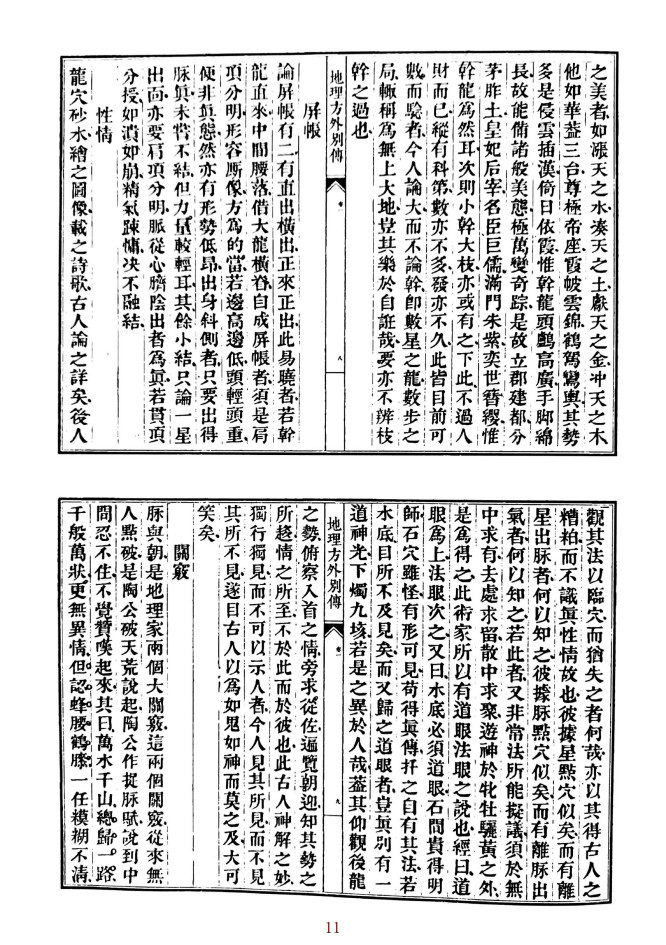 之美者如漲天之水湊天之土獻天之金冲天之木
他如華蓋三台尊極帝座霞帔雲錦鶴駕鸞輿其勢
多是侵雲插漢倚日依霞惟幹龍頭鸕高廣手脚綿
長故能備諸般美態極萬變奇踪是故立郡建都分
茅胙土皇妃后宰名臣巨儒滿門朱紫奕世簪纓惟
幹龍爲然耳次則小幹大枝亦或有之下此不過人
財而已縱有科第數亦不多發亦不久此皆目前可
數而騐者今人論大而不論幹即數星之龍數步之
局輙稱爲無上大地豈其樂於自誑哉要亦不辨枝
幹之過也
地理方外別傳 卷一 八
屏帳
論屏帳有二有直出橫出正來正出此易曉者若幹
龍直來中間腰落借大龍橫脊自成屏帳者須是肩
項分明形容厮像方為的當若邊高邊低頭輕頭重
便非眞態然亦有形勢低昂出身斜側者只要出得
脉眞未嘗不結但力量較輕耳其餘小結只論一星
出面亦要肩項分明脈從心臍陰出者為眞若貫頂
分授如潰如崩精氣踈慵决不融結
性情
龍穴砂水繪之圖像載之詩歌古人論之詳矣後人
觀其法以臨穴而猶失之者何哉亦以其得古人之
糟粕而不識眞性情故也彼據星點穴似矣而有離
星出脉者何以知之彼據脉點穴似矣而有離脉出
氣者何以知之若此者又非常法所能擬議須於無
中求有去處求留散中求聚遊神於牝牡驪黃之外
是為得之此術家所以有道眼法眼之說也經曰道
眼爲上法眼次之又曰水底必須道眼石間貴得明
師石穴雖怪有形可見苟得眞傳扦之自有其法若
水底目所不及見矣而又歸之道眼者豈眞別有一
道神光下燭九垓若是之異於人哉蓋其仰觀後龍
地理方外別傳 卷一 九
之勢俯察入首之情旁求從佐遍覽朝迎知其勢之
所趨情之所至不於此而於彼也此古人神解之妙
獨行獨見而不可以示人者今人見其所見而不見
其所不見遂目古人以爲如鬼如神而莫之及大可
笑矣
關竅
脉與朝是地理家兩個大關竅這兩個關竅從來無
人點破是陶公破天荒說起陶公作捉脉賦說到中
間忍不住不覺贊嘆起來其曰萬水千山總歸一路
千般萬狀更無異情但認蜂腰鶴膝一任模糊不清
11